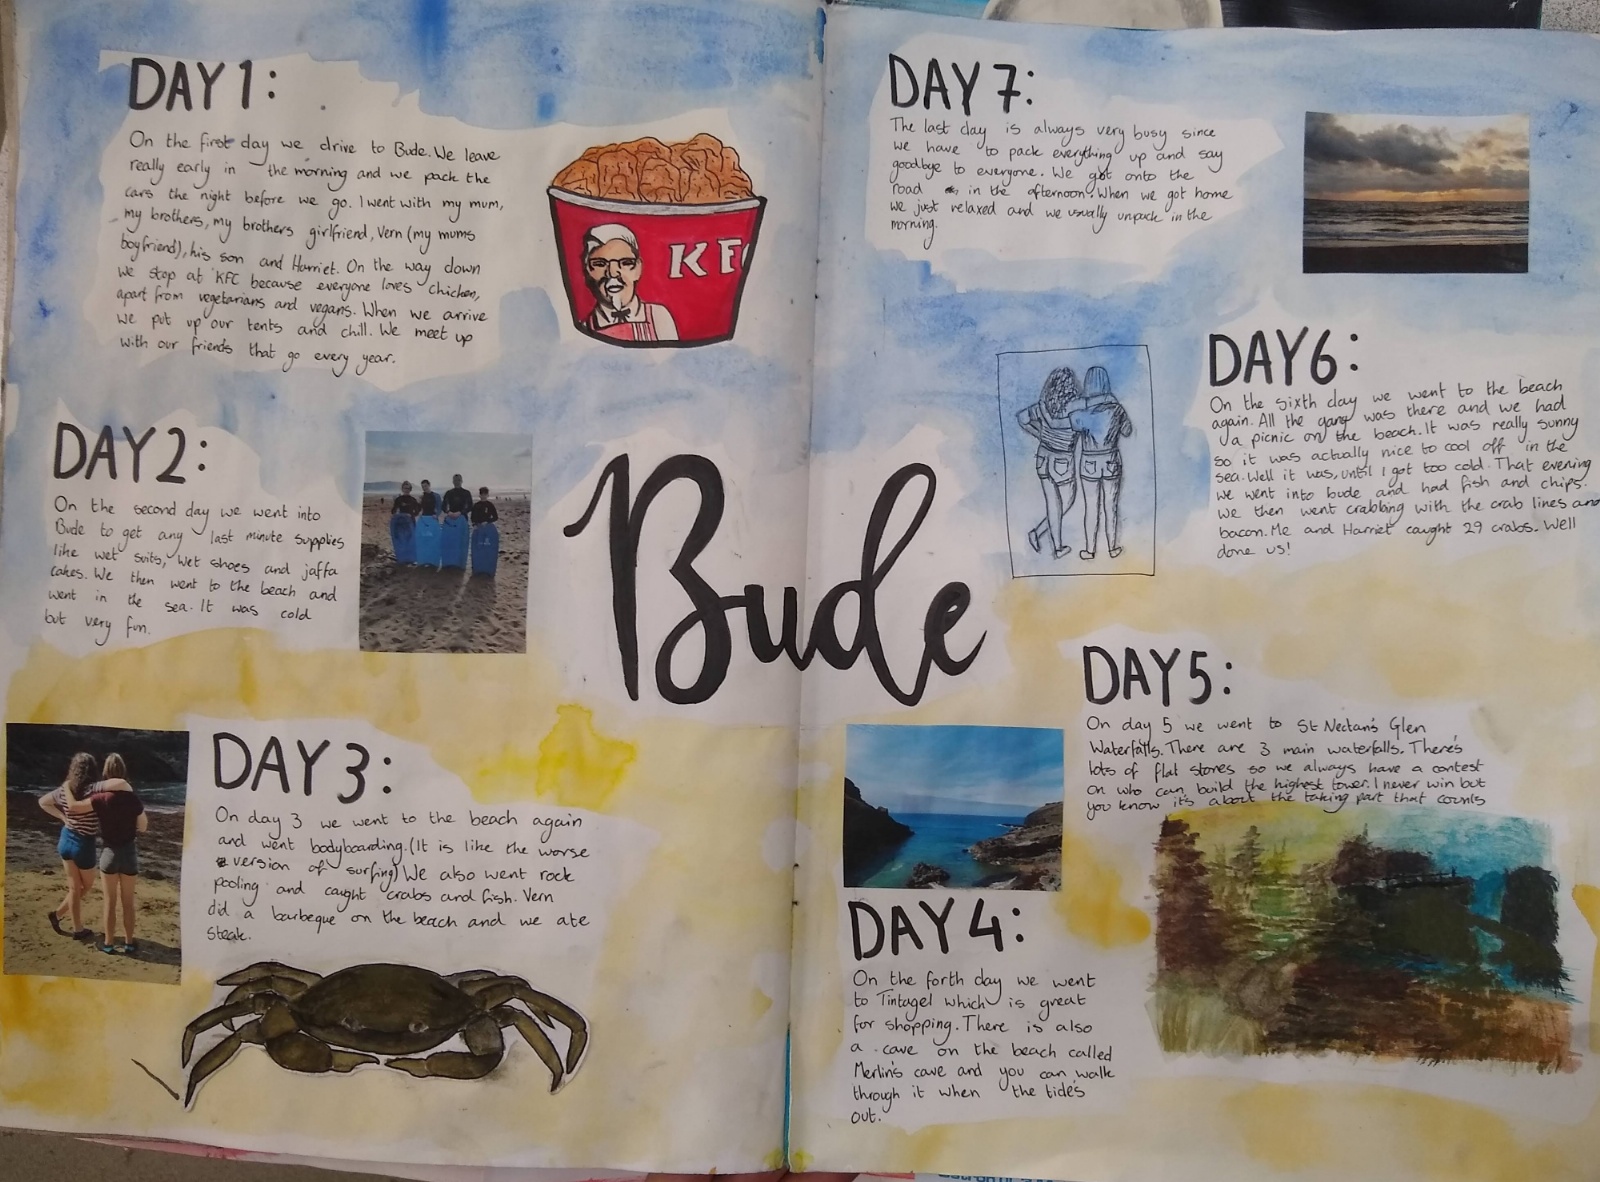 DAY 1:
On the first day we drive to Bude. We leave
really early in the morning and we pack the
cars the night before we go. I went with my mum,
my brothers, my brothers girlfriend, Vern (my mums
boyfriend), his son and Harriet. On the way down
we stop at KFC because everyone loves chicken,
apart from vegetarians and vegans. When we arrive
we put up our tents and chill. We meet up
with our friends that go every year.
KFC
DAY 2:
On the second day we went into
Bude to get any last minute supplies
like wet suits, wet shoes and jaffa
cakes. We then went to the beach and
went in the sea. It was cold
but very fun.
Bude
DAY 3:
On day 3 we went to the beach again
and went bodyboarding. (It is like the worse
version of surfing) We also went rock
pooling and caught crabs and fish. Vern
did a barbeque on the beach and we ate
steak.
DAY 4:
On the forth day we went
to Tintagel which is great
for shopping. There is also
a cave on the beach called
Merlin's cave and you can walk
through it when the tide's
out.
DAY 5:
On day 5 we went to St Nectan's Glen
Waterfalls. There are 3 main waterfalls. There's
lots of flat stones so we always have a contest
on who can build the highest tower. I never win but
you know it's about the taking part that counts
DAY 6:
On the sixth day we went to the beach
again. All the gang was there and we had
a picnic on the beach. It was really sunny
so it was actually nice to cool off in the
sea. Well it was, until I got too cold. That evening
we went into bude and had fish and chips.
We then went crabbing with the crab lines and
bacon. Me and Harriet caught 29 crabs. Well
done us!
DAY 7:
The last day is always very busy since
we have to pack everything up and say
goodbye to everyone. We got onto the
road in the afternoon. When we got home
we just relaxed and we usually unpack in the
morning.